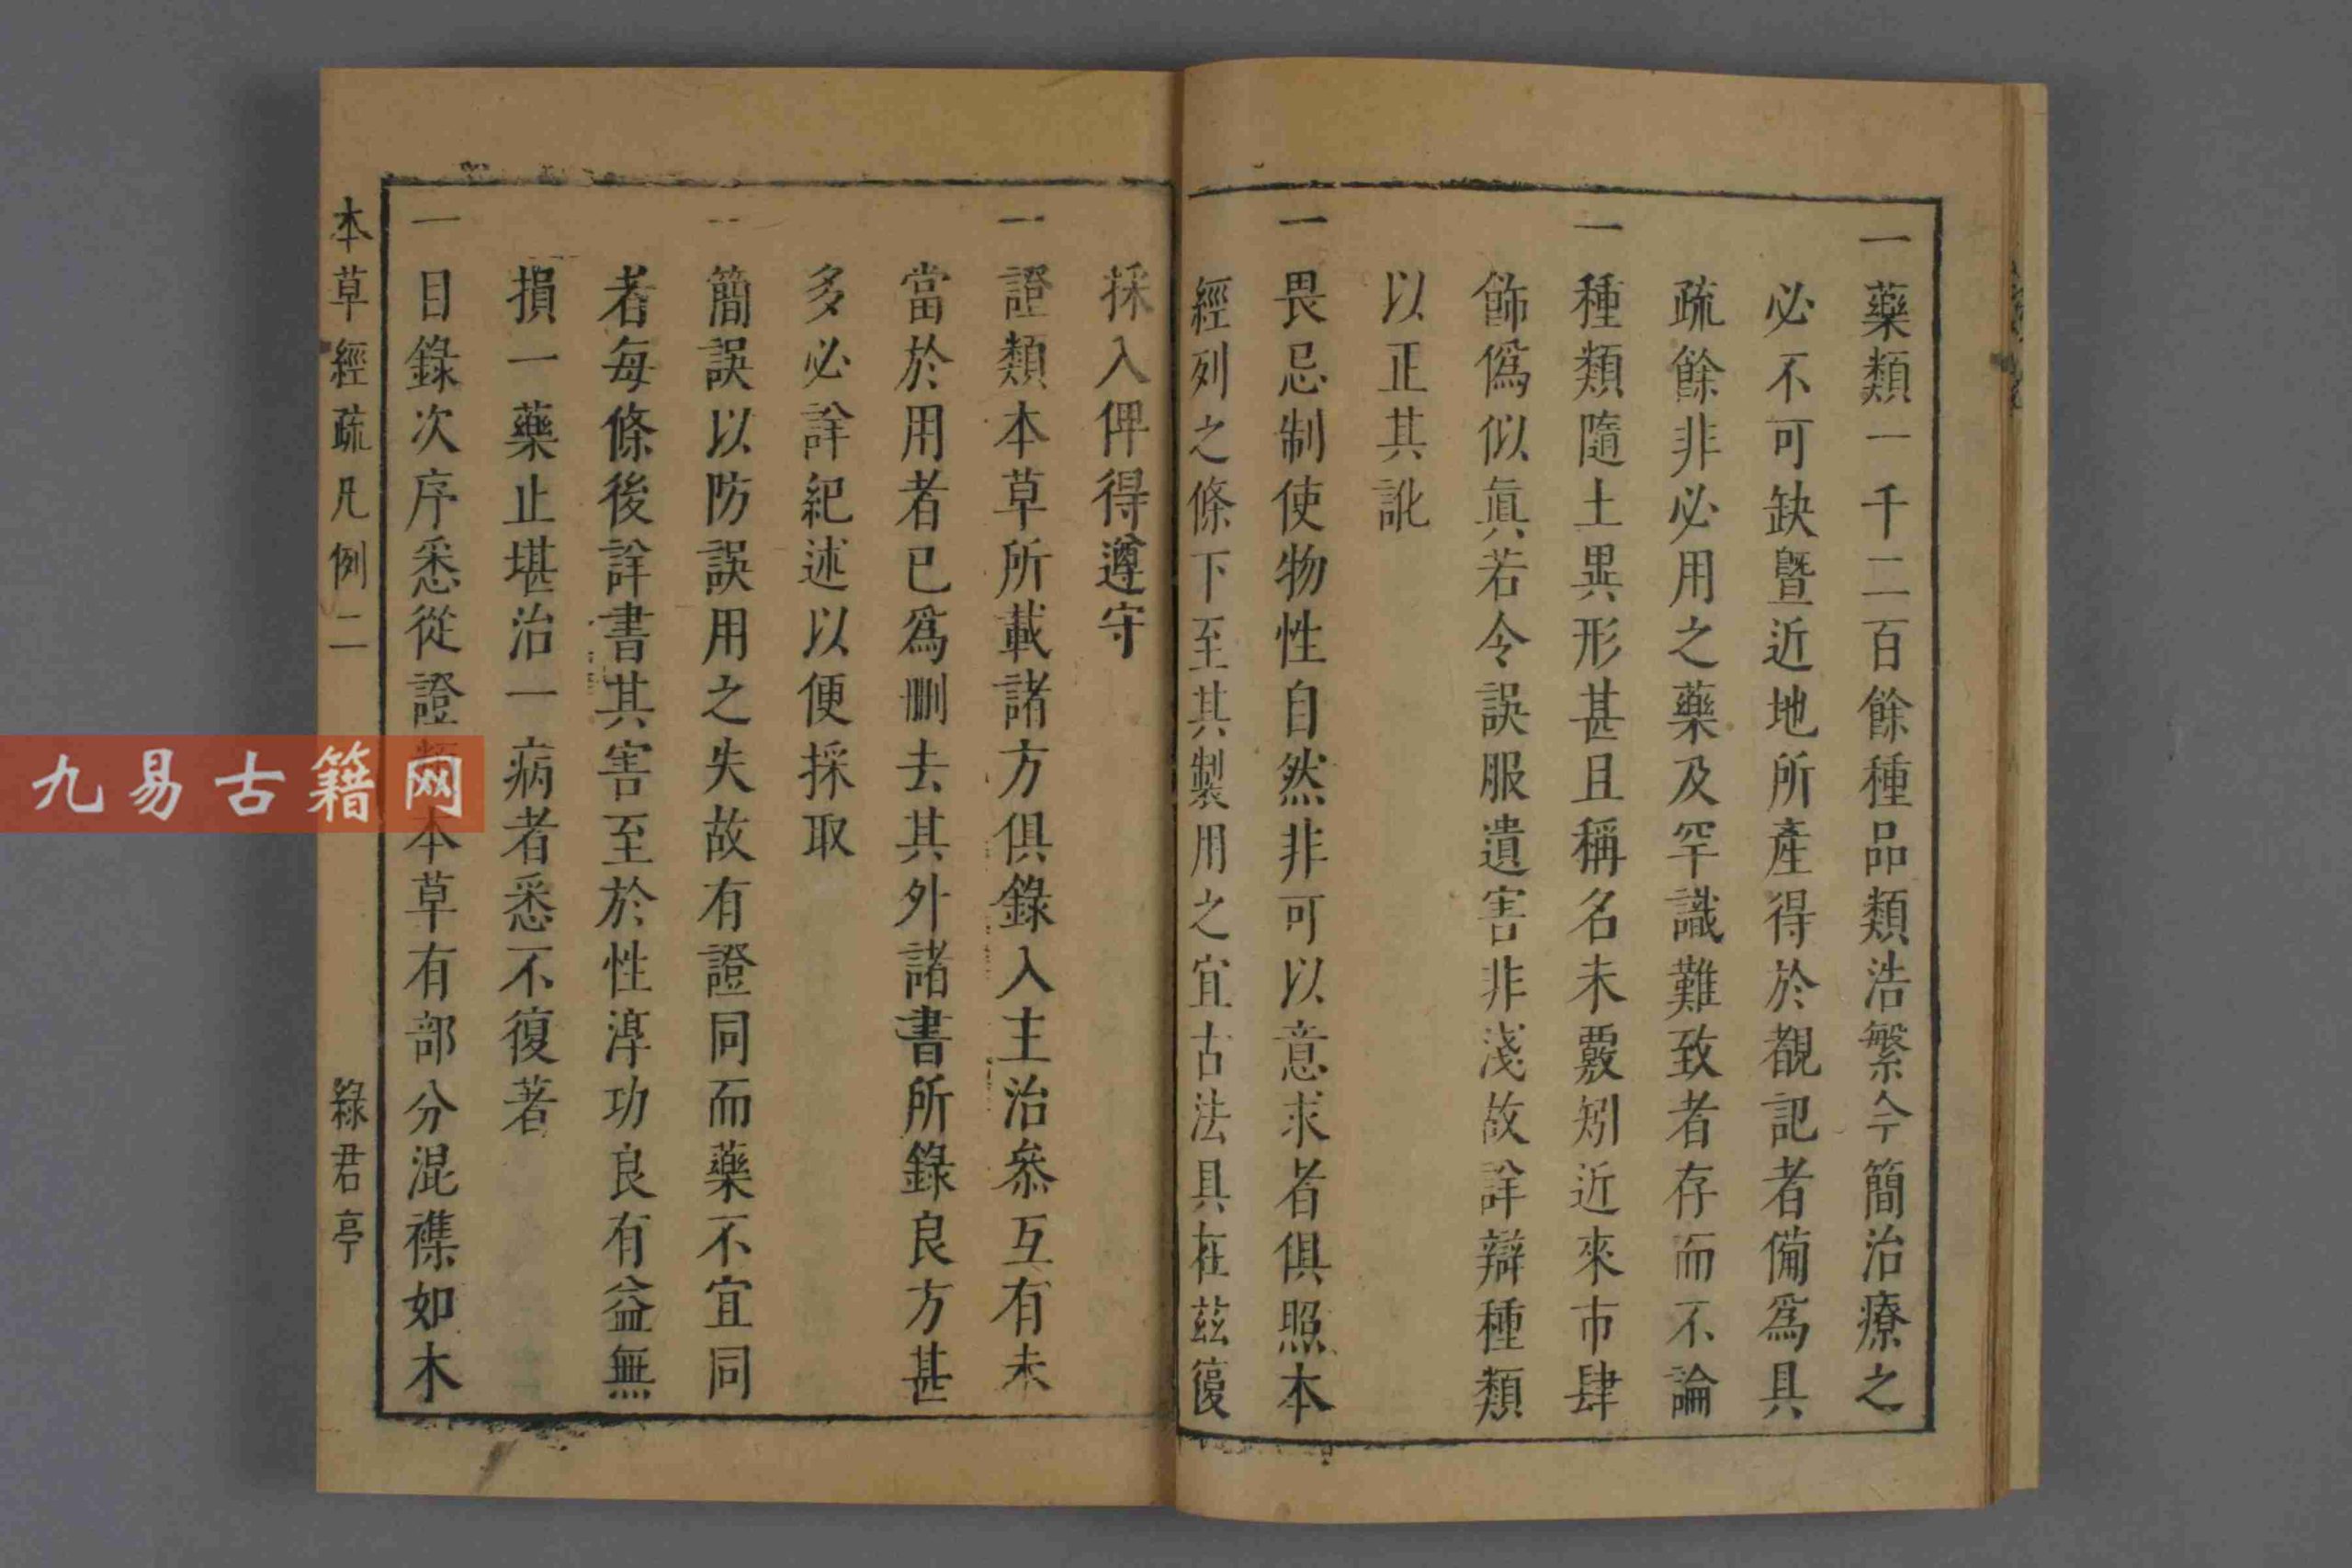 一藥類一千二百餘種品類浩繁今簡治療之
必不可缺暨近地所產得於覩記者備爲具
疏餘非必用之藥及罕識難致者存而不論
一種類隨土異形甚且稱名未覈矧近來市肆
飾僞似眞若令誤服遺害非淺故詳辯種類
以正其訛
一畏忌制使物性自然非可以意求者俱照本
經列之條下至其製用之宜古法具在茲復
採入俾得遵守
一證類本草所載諸方俱錄入主治叅互有未
當於用者已爲刪去其外諸書所錄良方甚
多必詳紀述以便採取
一簡誤以防誤用之失故有證同而藥不宜同
者每條後詳書其害至於性淳功良有益無
損一藥止堪治一病者悉不復著
一目錄次序悉從證類本草有部分混襍如木
本草經疏凡例二 綠君亭
九易古籍网